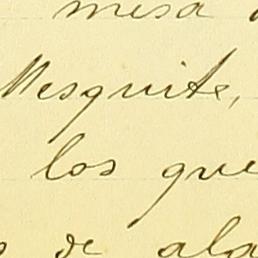 mesa
Mesquite,
los que
de ala